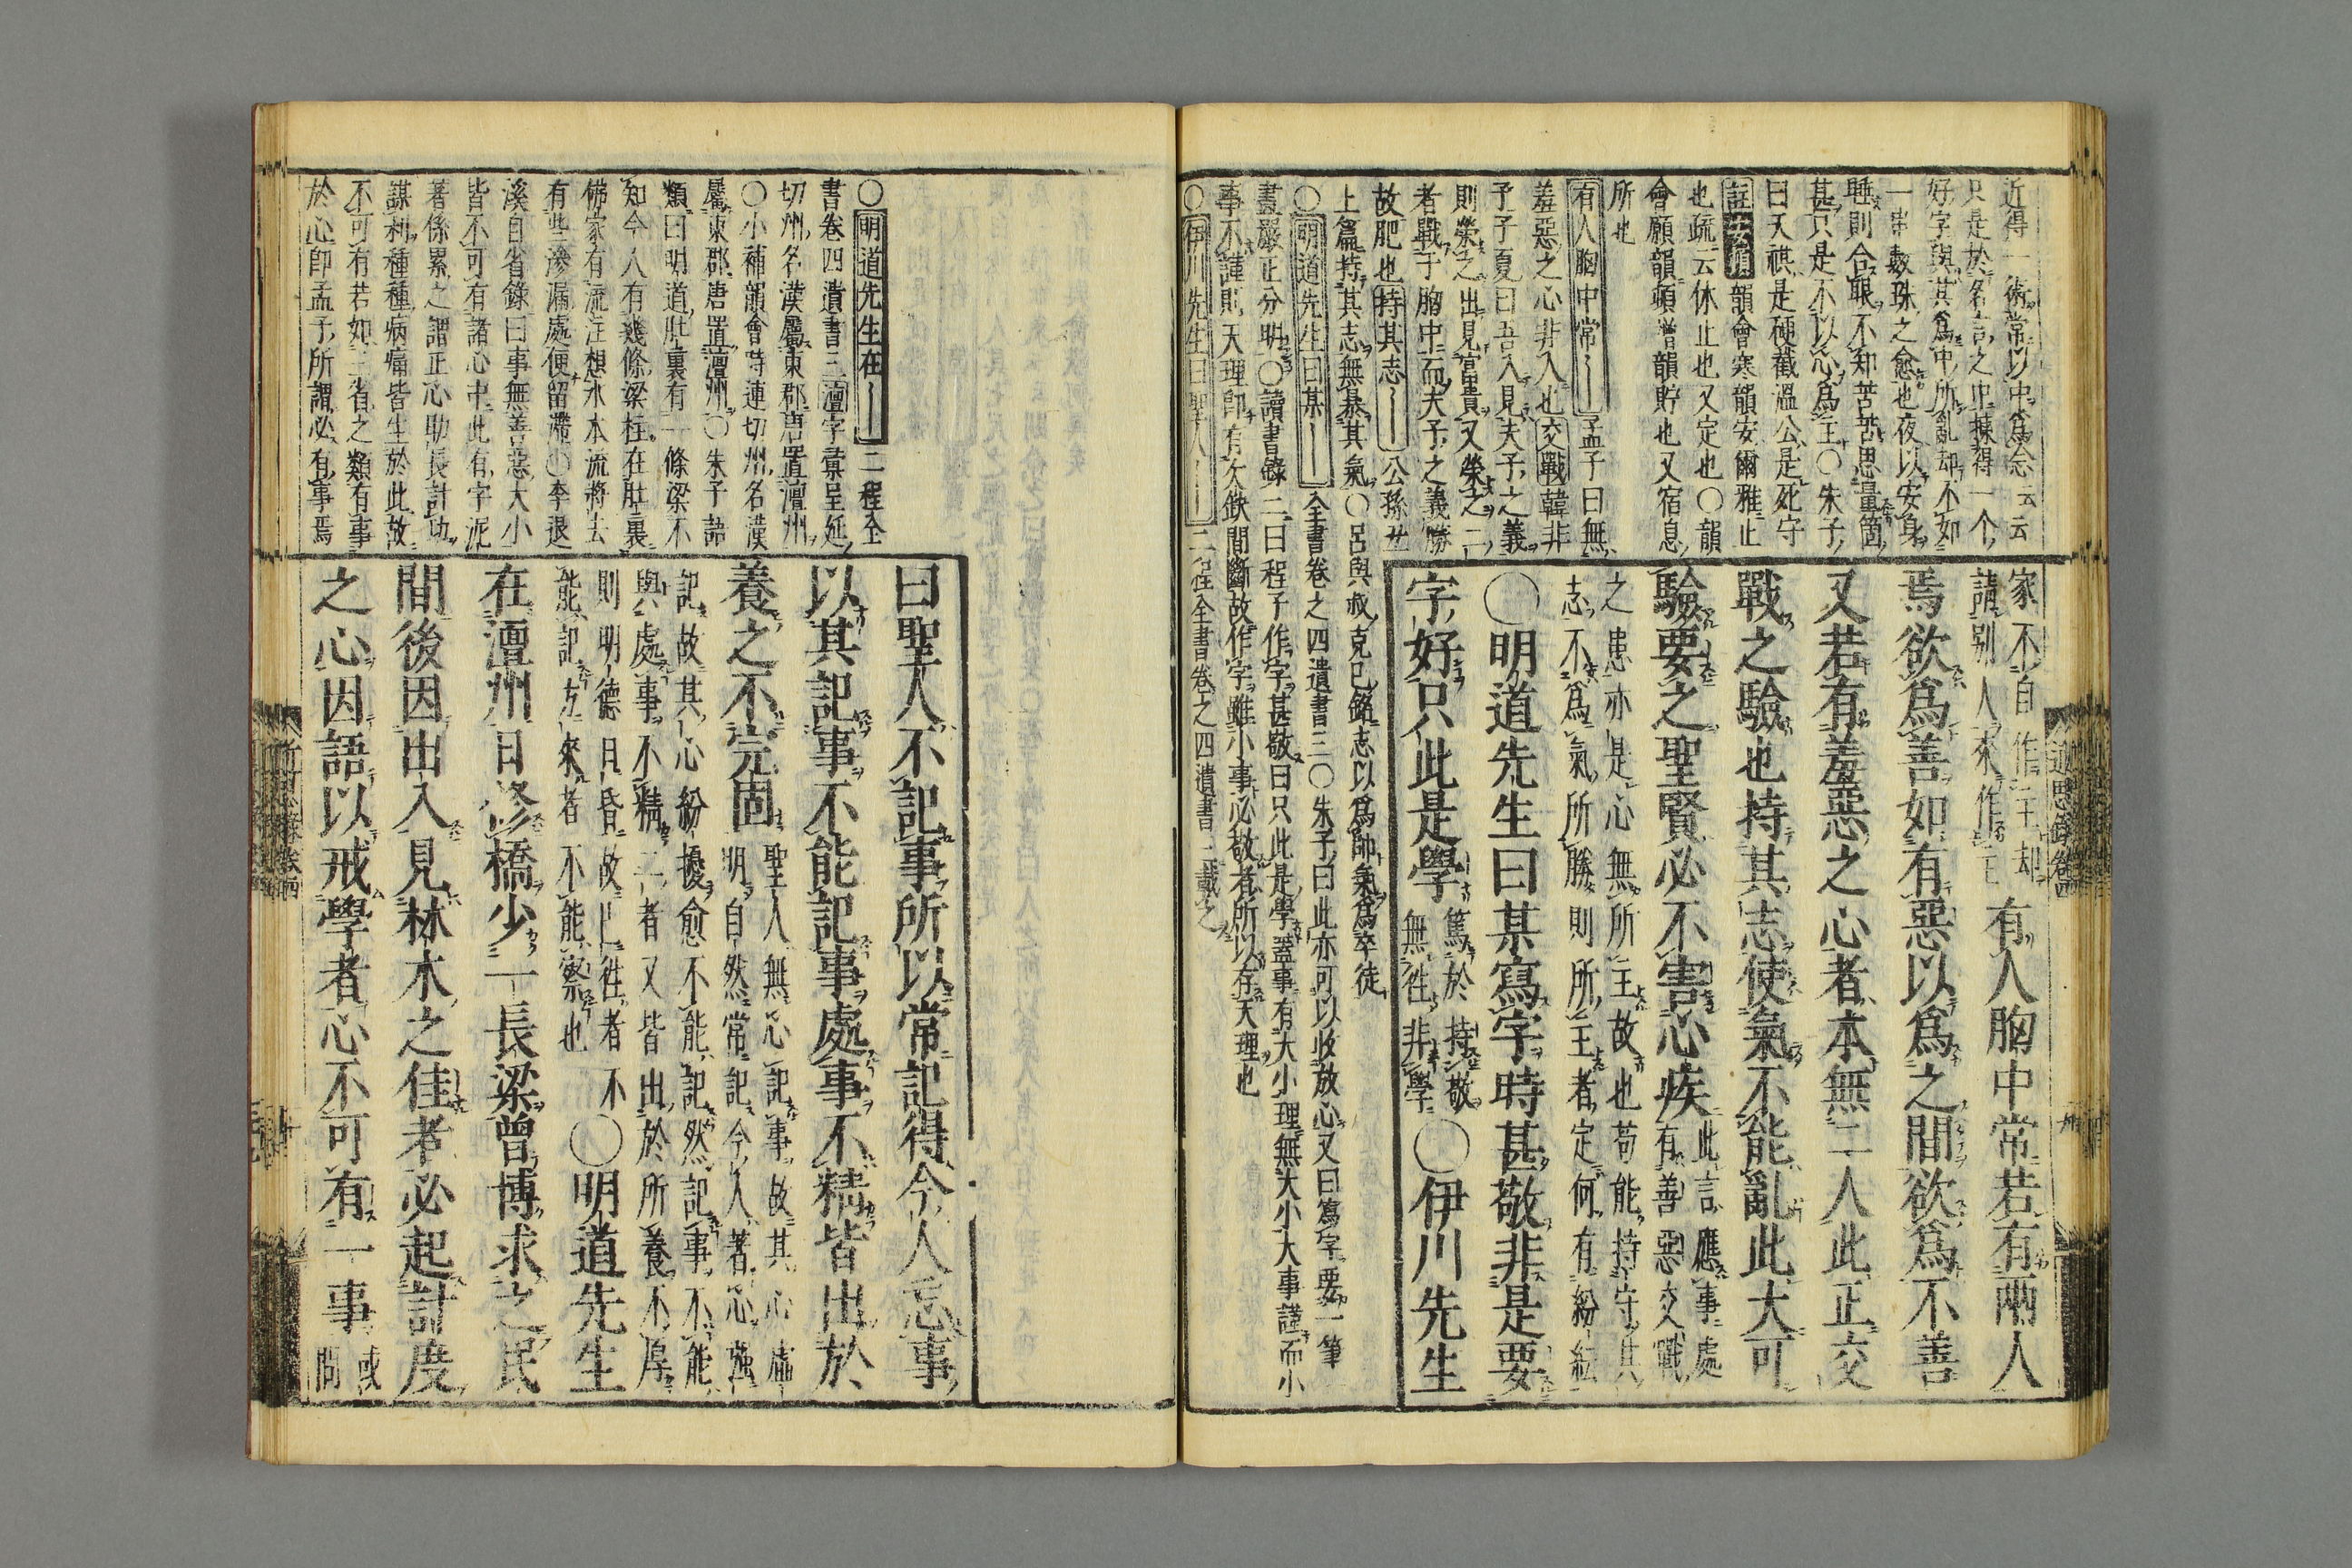 近得一術常以中爲念云云
只是於名言之中揀得一个
好字與其爲中所亂却不如
一串數珠之愈也夜以安身
睡則合眼不知苦苦思量箇
甚只是不以心爲主○朱子
曰天祺是硬截溫公是死守
註安頓韻會寒韻安爾雅止
也疏云休止也又定也○韻
會願韻頓增韻貯也又宿息
所也
有人胸中常――孟子曰無
羞惡之心非人也交戰韓非
子子夏曰吾入見夫子之義
則榮之出見富貴又榮之二
者戰于胸中而夫子之義勝
故肥也持其志――公孫丑
上篇持其志無暴其氣○呂與叔克己銘志以爲帥氣爲卒徒
○明道先生曰某――全書卷之四遺書三○朱子曰此亦可以收放心又曰寫字要一筆
畫嚴正分明○讀書錄二曰程子作字甚敬曰只此是學蓋事有大小理無大小大事謹而小
事不謹則天理即有欠缺間斷故作字雖小事必敬者所以存天理也
○伊川先生曰聖人――二程全書卷之四遺書三載之
家不自作主却
請別人來作主 有人胸中常若有兩人
焉欲爲善如有惡以爲之間欲爲不善
又若有羞惡之心者本無二人此正交
戰之驗也持其志使氣不能亂此大可
驗要之聖賢必不害心疾此言應事處
有善惡交戰
之患亦是心無所主故也苟能持守其
志不爲氣所勝則所主者定何有紛紜
○明道先生曰某寫字時甚敬非是要
字好只此是學篤於持敬
無往非學○伊川先生
曰聖人不記事所以常記得今人忘事
以其記事不能記事處事不精皆出於
養之不完固聖人無心記事故其心虛
明自然常記今人著心強
記故其心紛擾愈不能記然記事不能
與處事不精二者又皆出於所養不厚
則明德日昏故已往者不
能記方來者不能察也○明道先生
在澶州日修橋少一長梁曾博求之民
間後因出入見林木之佳者必起計度
之心因語以戒學者心不可有一事或
問
○明道先生在――二程全
書卷四遺書三澶字彙呈延
切州名漢屬東郡唐置澶州
○小補韻會時連切州名漢
屬東郡唐置澶州○朱子語
類曰明道肚裏有一條梁不
知今人有幾條梁柱在肚裏
佛家有流注想水本流將去
有些滲漏處便留滯○李退
溪自省錄曰事無善惡大小
皆不可有諸心中此有字泥
著係累之謂正心助長計功
謀利種種病痛皆生於此故
不可有若如三省之類有事
於心即孟子所謂必有事焉